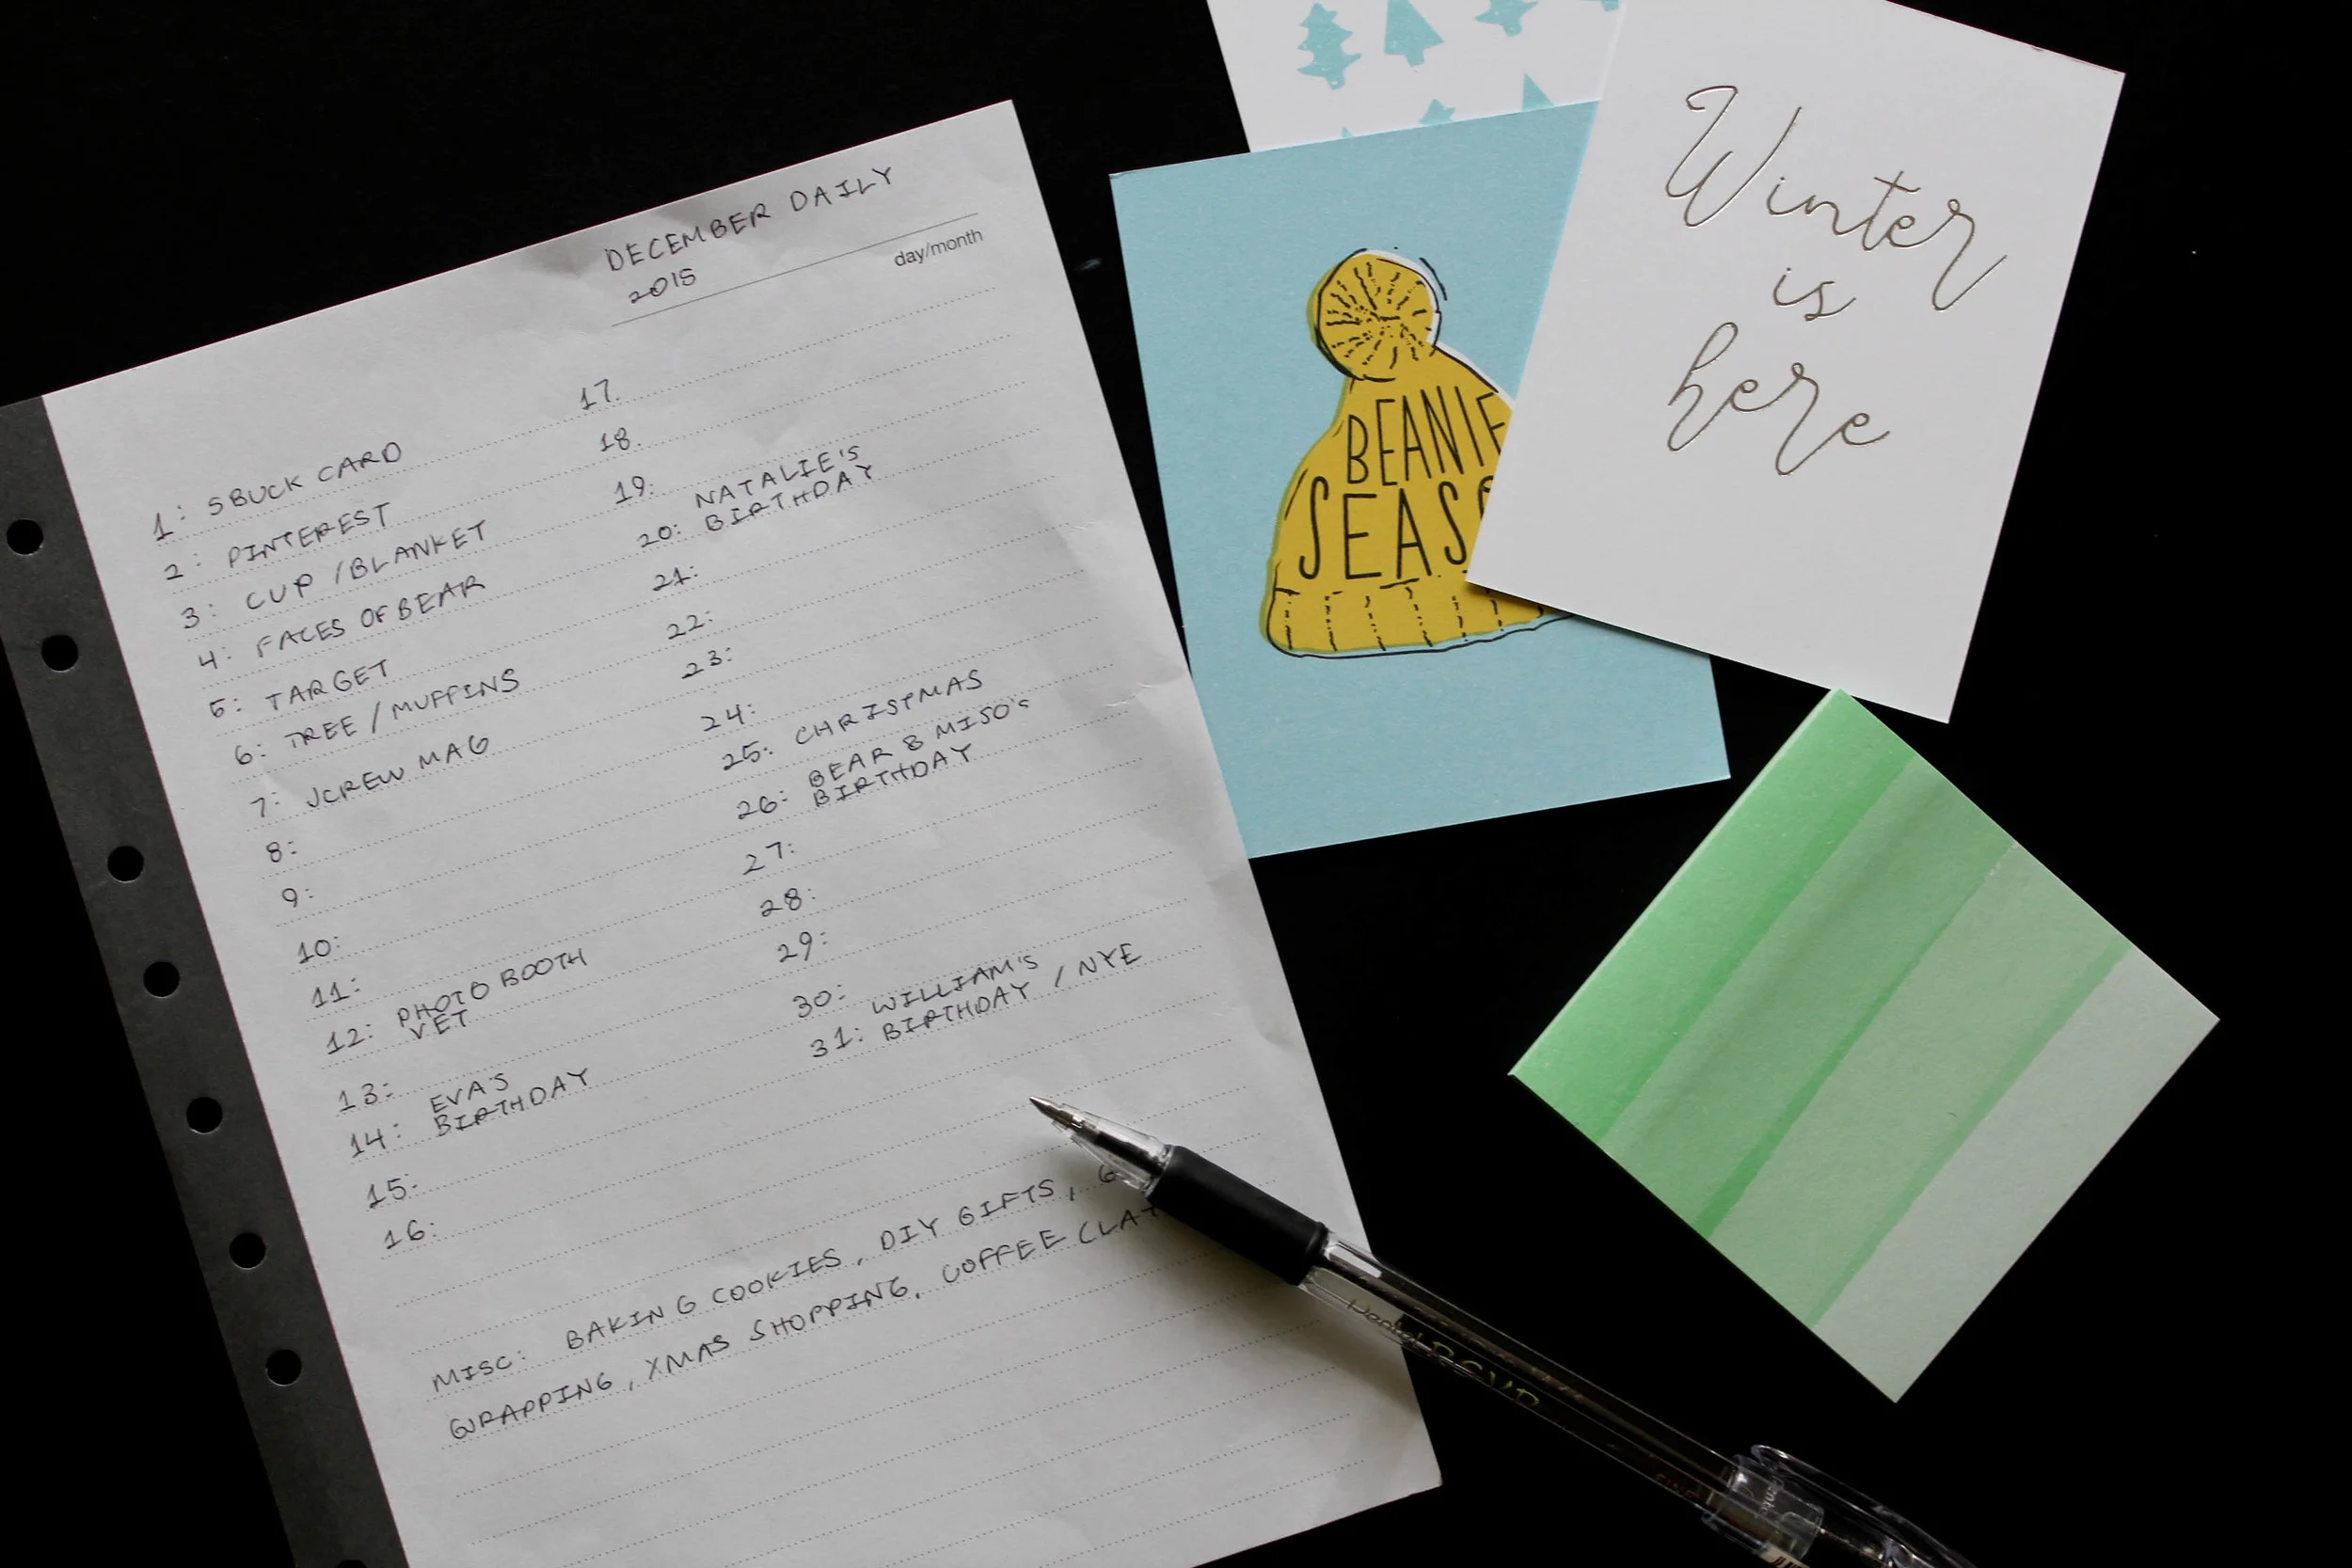 DECEMBER DAILY
2015
day/month
1: SBUCK CARD
2: PINTEREST
3: CUP / BLANKET
4: FACES OF BEAR
5: TARGET
6: TREE / MUFFINS
7: JCREW MAG
8:
9:
10:
11:
12: PHOTO BOOTH
VET
13:
14: EVA'S
BIRTHDAY
15:
16:
17.
18
19.
20: NATALIE'S
BIRTHDAY
21:
22:
23:
24:
25: CHRISTMAS
26: BEAR & MISO'S
BIRTHDAY
27:
28:
29:
30:
31: WILLIAM'S
BIRTHDAY / NYE
MISC: BAKING COOKIES, DIY GIFTS,
WRAPPING, XMAS SHOPPING, COFFEE
BEANIE
SEASO
Winter
is
here
Pentel R.S.V.P.